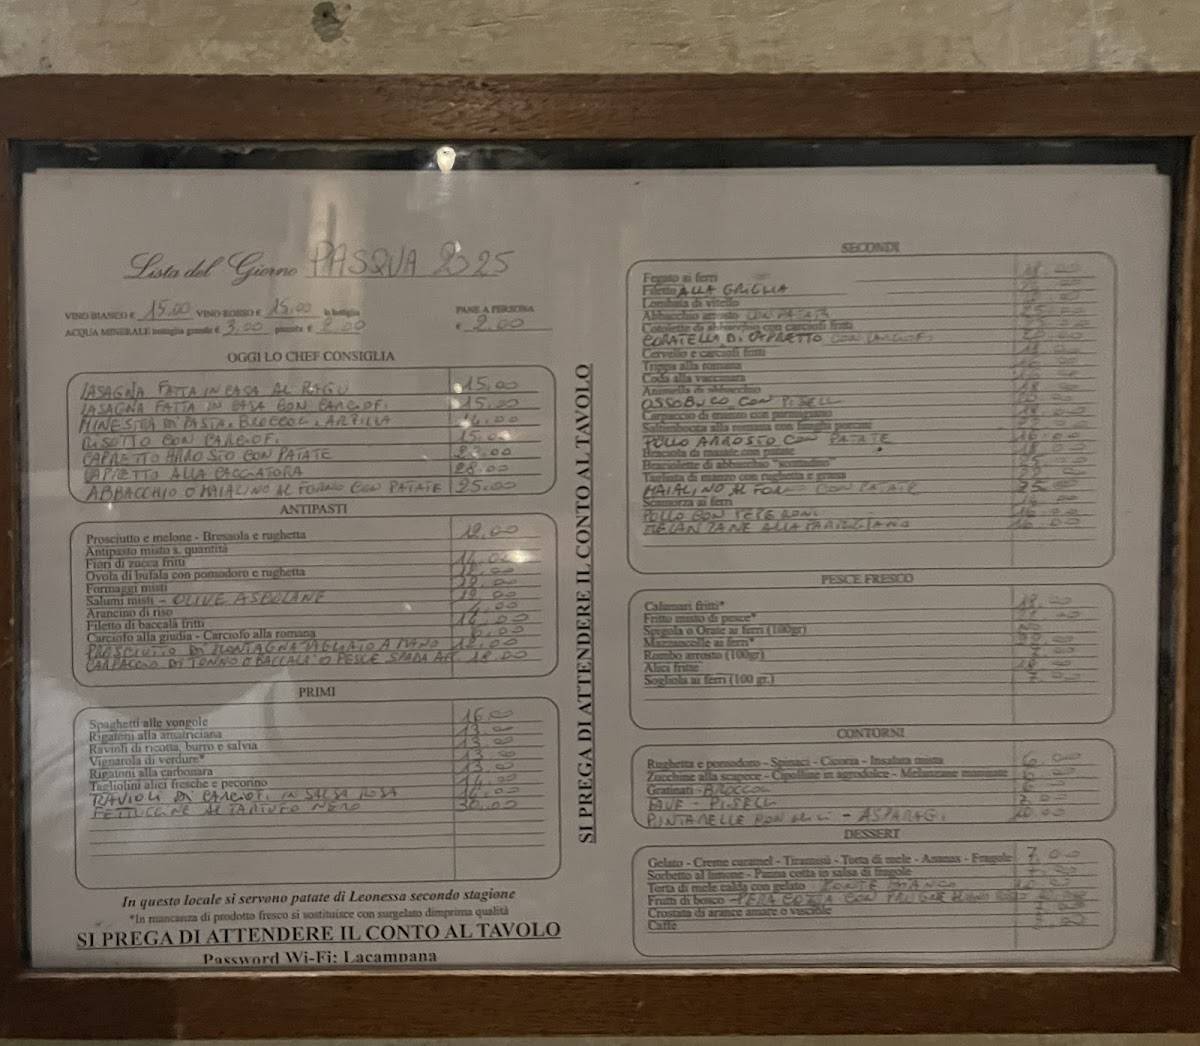 Lista del Giorno PASQUA 2025
VINO BIANCO € 15.00 VINO ROSSO € 15.00 la bottiglia
PANE A PERSONA
ACQUA MINERALE bottiglia grande € 3.00 piccola € 2.00
€ 2.00
OGGI LO CHEF CONSIGLIA
LASAGNA FATTA IN CASA AL RAGU 15.00
LASAGNA FATTA IN CASA CON CARCIOFI 15.00
MINESTRA DI PASTA, BROCCOLI, ARZILLA 14.00
RISOTTO CON CARCIOFI 15.00
CAPRETTO ARROSTO CON PATATE
CAPRETTO ALLA CACCIATORA 28.00
ABBACCHIO O MAIALINO AL FORNO CON PATATE 25.00
ANTIPASTI
Prosciutto e melone - Bresaola e rughetta
Antipasto misto s. quantità
Fiori di zucca fritti
Ovola di bufala con pomodoro e rughetta
Formaggi misti
Salumi misti - OLIVE ASCOLANE
Arancino di riso
Filetto di baccalà fritti
Carciofo alla giudia - Carciofo alla romana
PROSCIUTTO DI MONTAGNA TAGLIATO A MANO
CARPACCIO DI TONNO O BACCALA' O PESCE SPADA 18.00
PRIMI
Spaghetti alle vongole 16.00
Rigatoni alla amatriciana 13.00
Ravioli di ricotta, burro e salvia 13.00
Vignarola di verdure* 13.00
Rigatoni alla carbonara 13.00
Tagliolini alici fresche e pecorino 14.00
RAVIOLI DI CARCIOFI IN SALSA ROSA 14.00
FETTUCCINE AL TARTUFO NERO 30.00
In questo locale si servono patate di Leonessa secondo stagione
*In mancanza di prodotto fresco si sostituisce con surgelato di
SI PREGA DI ATTENDERE IL CONTO AL TAVOLO
Password Wi-Fi: Lacampana
SI PREGA DI ATTENDERE IL CONTO AL TAVOLO
SECONDI
Fegato ai ferri
Filetto ALLA GRIGLIA
Lombata di vitello
Abbacchio arrosto CON PATATE
Cotolette di abbacchio con carciofi fritti
CORATELLA DI CAPRETTO CON CARCIOFI
Cervello e carciofi fritti
Trippa alla romana
Coda alla vaccinara
Animella di abbacchio
OSSOBUCO CON PISELLI
Carpaccio di manzo con parmigiano
Saltimbocca alla romana con funghi porcini
POLLO ARROSTO CON PATATE 16.00
Braciola di maiale con patate
Braciolette di abbacchio "scottadito"
Tagliata di manzo con rughetta e grana
MAIALINO AL FORNO CON PATATE 25.00
Scamorza ai ferri
POLLO CON PEPERONI 16.00
MELANZANE ALLA PARMIGIANA 16.00
PESCE FRESCO
Calamari fritti*
Fritto misto di pesce*
Spigola o Orate ai ferri (100gr)
Mazzancolle ai ferri*
Rombo arrosto (100gr)
Alici fritte
Sogliola ai ferri (100 gr.)
CONTORNI
Rughetta e pomodoro - Spinaci - Cicoria - Insalata mista 6.00
Zucchine alla scapece - Cipolline in agrodolce - Melanzane
Gratinati - BROCCOLI
FAVE - PISELLI
PUNTARELLE CON ALICI - ASPARAGI 10.00
DESSERT
Gelato - Creme caramel - Tiramisù - Torta di mele - Ananas - Fragole 7.00
Sorbetto al limone - Panna cotta in salsa di fragole
Torta di mele calda con gelato MONTE BIANCO
Frutti di bosco - PERA COTTA CON PRUGNE
Crostata di arance amare o visciole
Caffè